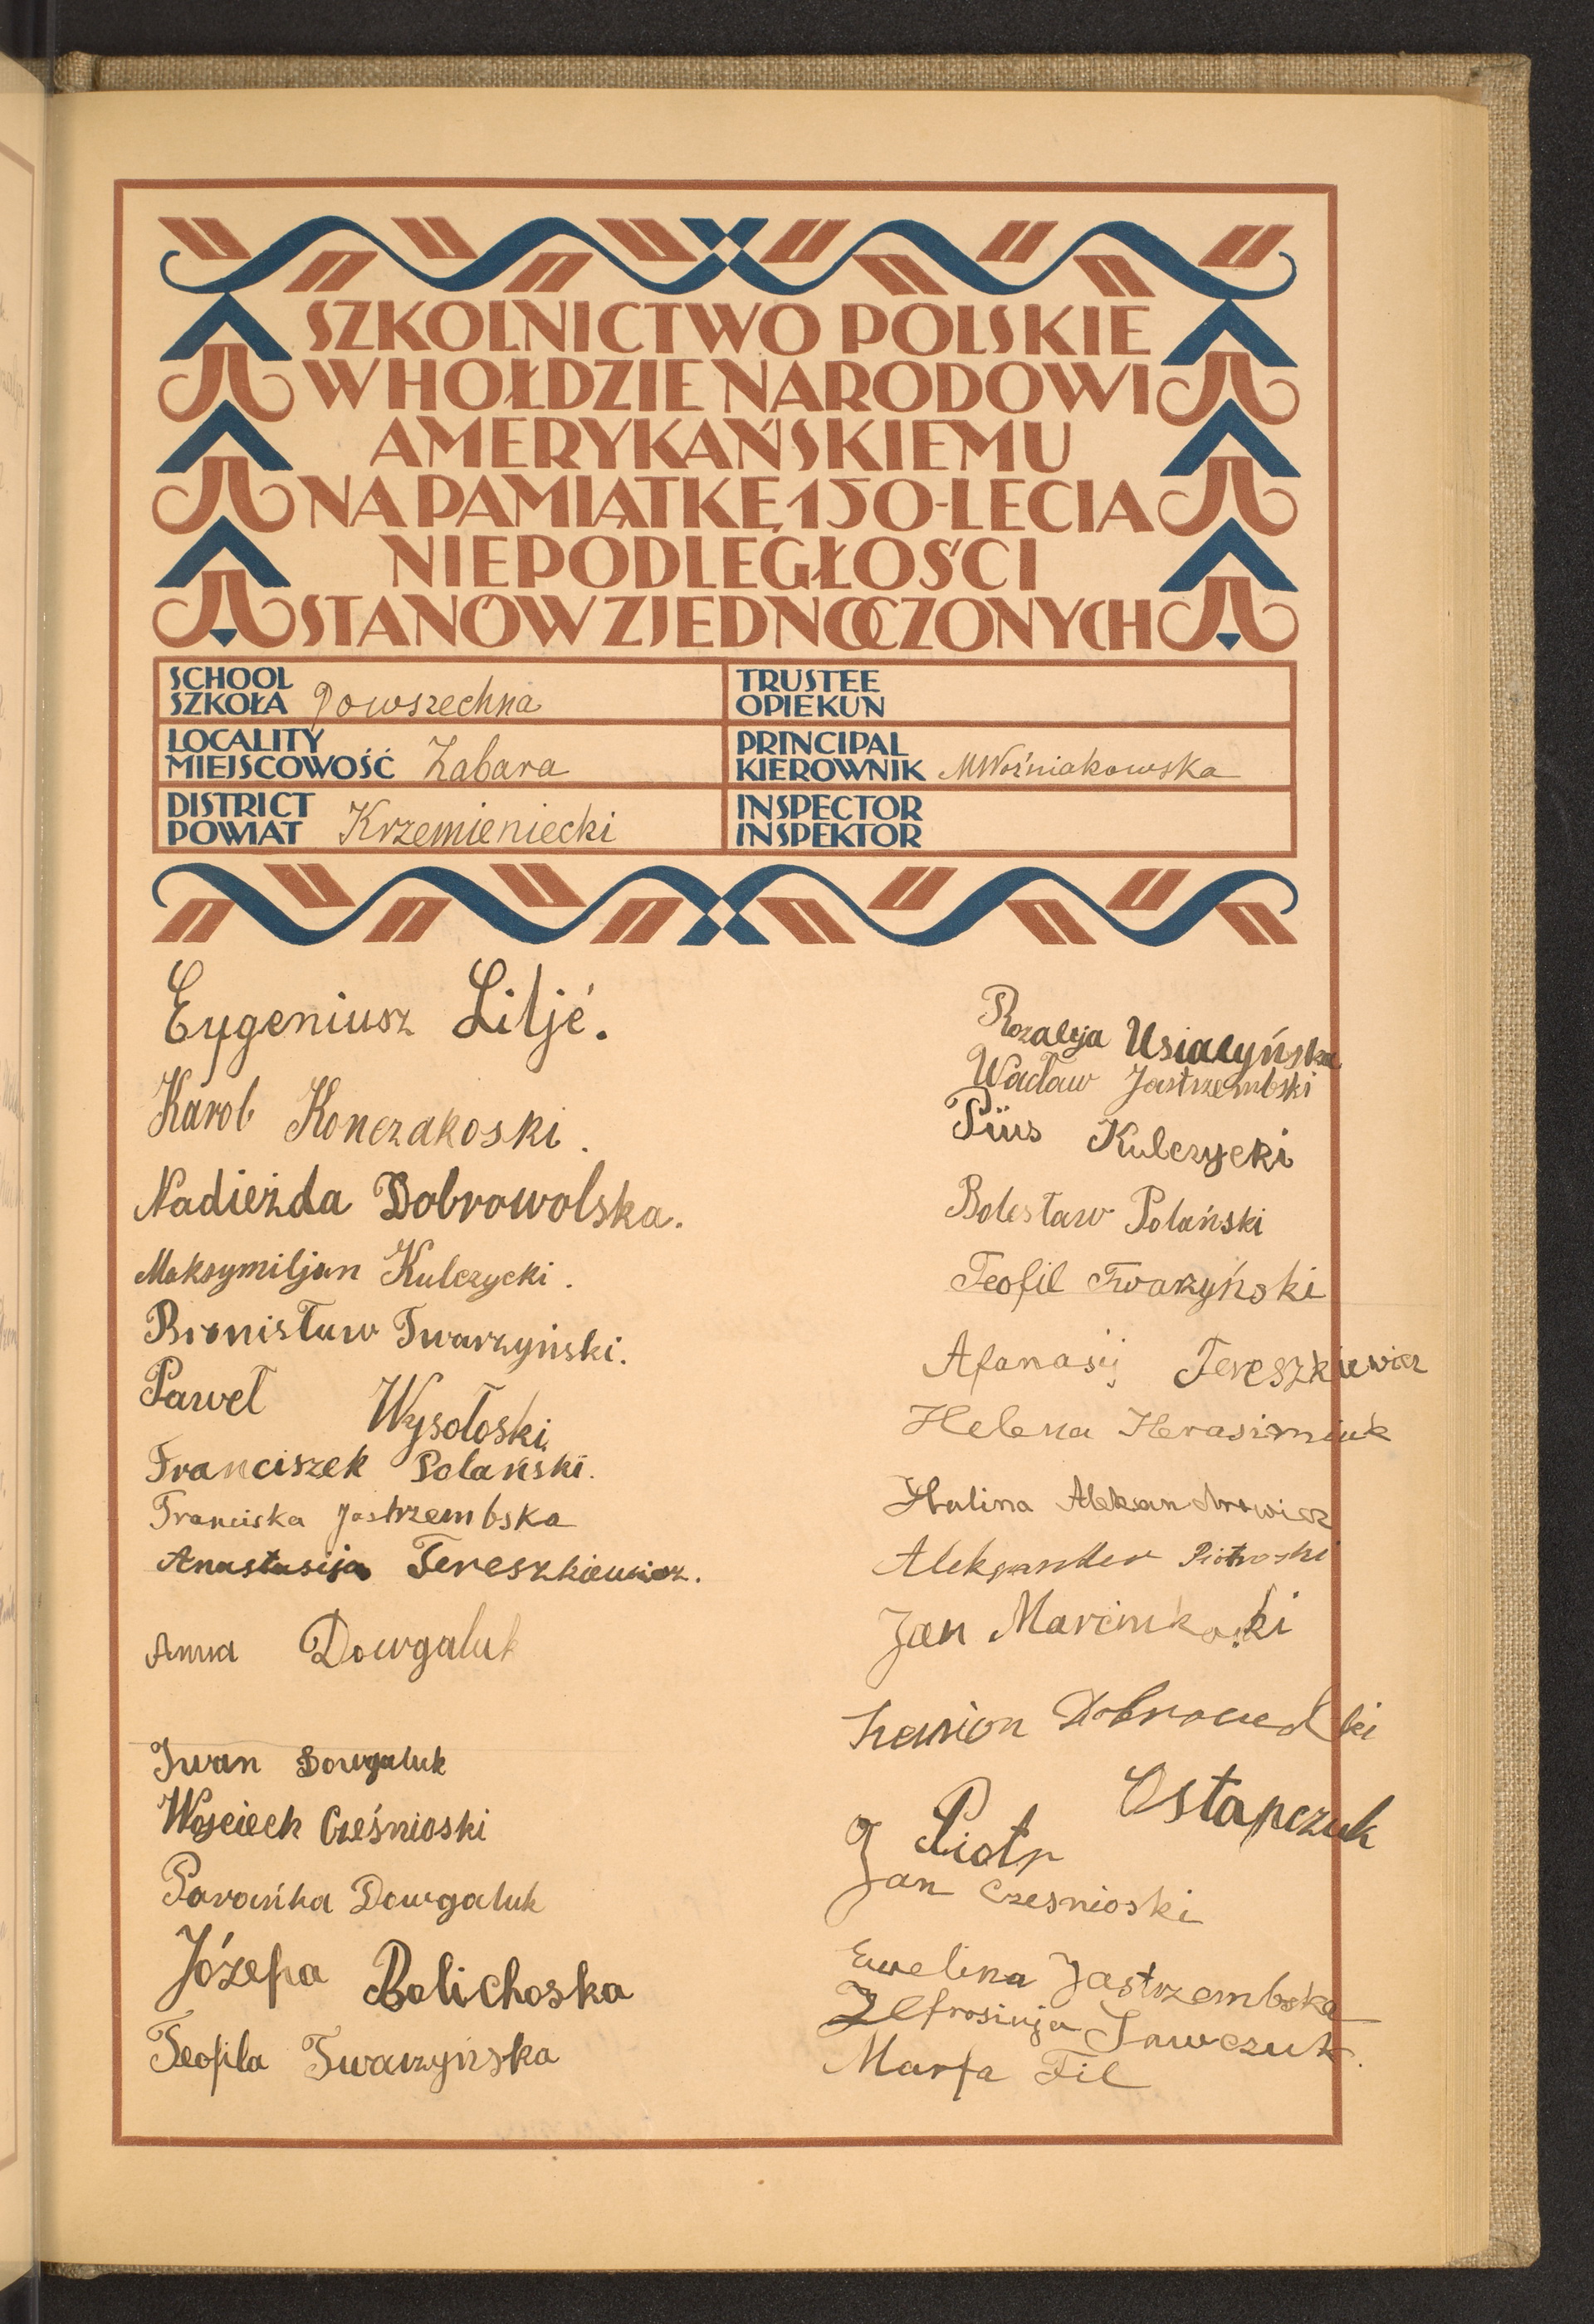 SZKOLNICTWO POLSKIE
W HOŁDZIE NARODOWI
AMERYKAŃSKIEMU
NA PAMIĄTKĘ 150-LECIA
NIEPODLEGŁOŚCI
STANÓW ZJEDNOCZONYCH
SCHOOL
SZKOŁA Powszechna
LOCALITY
MIEJSCOWOŚĆ Zabara
DISTRICT
POWIAT Krzemieniecki
TRUSTEE
OPIEKUN
PRINCIPAL
KIEROWNIK MWoźniakowska
INSPECTOR
INSPEKTOR
Eugeniusz Liljé.
Karol Konczakoski.
Nadieżda Dobrowolska.
Maksymiljan Kulczycki.
Bronisław Twarzyński.
Paweł Wysołoski
Franciszek Polański.
Franciska Jastrzembska
Anastasija Tereszkiewicz.
Anna Dowgaluk
Iwan Dowgaluk
Wojciech Cześnioski
Parańka Dowgaluk
Józefa Bolichoska
Teofila Twarzyńska
Rozalja Usialyńska
Wacław Jastrzembski
Piius Kulczycki
Bolesław Polański
Teofil Twarzyński
Afanasij Tereszkiewicz
Helena Herasimiuk
Halina Aleksandrowicz
Aleksander Piotroski
Jan Marcinkoski
Ostapczuk
Piotr
Jan Czesnioski
Ewelina Jastrzembska
Marfa Fil